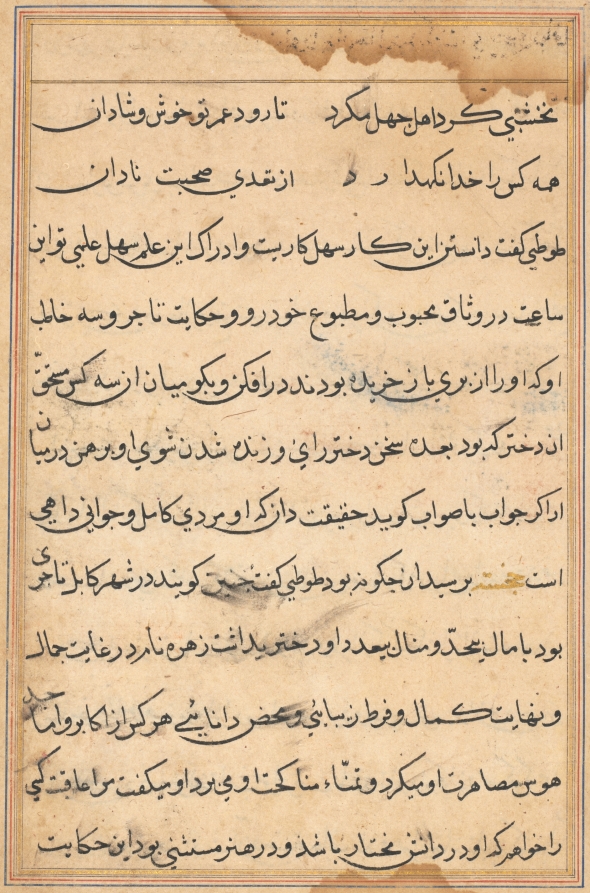 نخشبي كرد اهل جهل مكرد تا رود عمر تو خوش و شادان
همه كس را خدا نكهدارد از تعدي صحبت نادان
طوطي كفت دانستن اين كار سهل كاريست و ادراك اين علم سهل علمي تو اين
ساعت در وثاق محبوب و مطبوع خود رو و حكايت تاجر و سه خاطب
او كه او را از پري باز خريده بودند در افكن و بكو ميان ان سه كس مستحقّ
ان دختر كه بود بعده سخن دختر راي و زنده شدن شوي او برهن در ميان
ار اكر جواب باصواب كويد حقيقت دان كه او مردي كامل و جواني داهي
است خجسته پرسيد ان چكونه بود طوطي كفت چنين كويند در شهر كابل تاجري
بود با مال بيحدّ و منال بيعدد او دختري داشت زهره نام در غايت جمال
و نهايت كمال و فرط زيبائي و محض دانائي هر كس از اكابر و اماجد
هوس مصاهرت او ميكرد و تمنّاء مناكحت او مي برد او ميكفت مرا عاقبت كسي
را خواهم كه او در دانش مختار باشد و در هنر مستثني بود اين حكايت